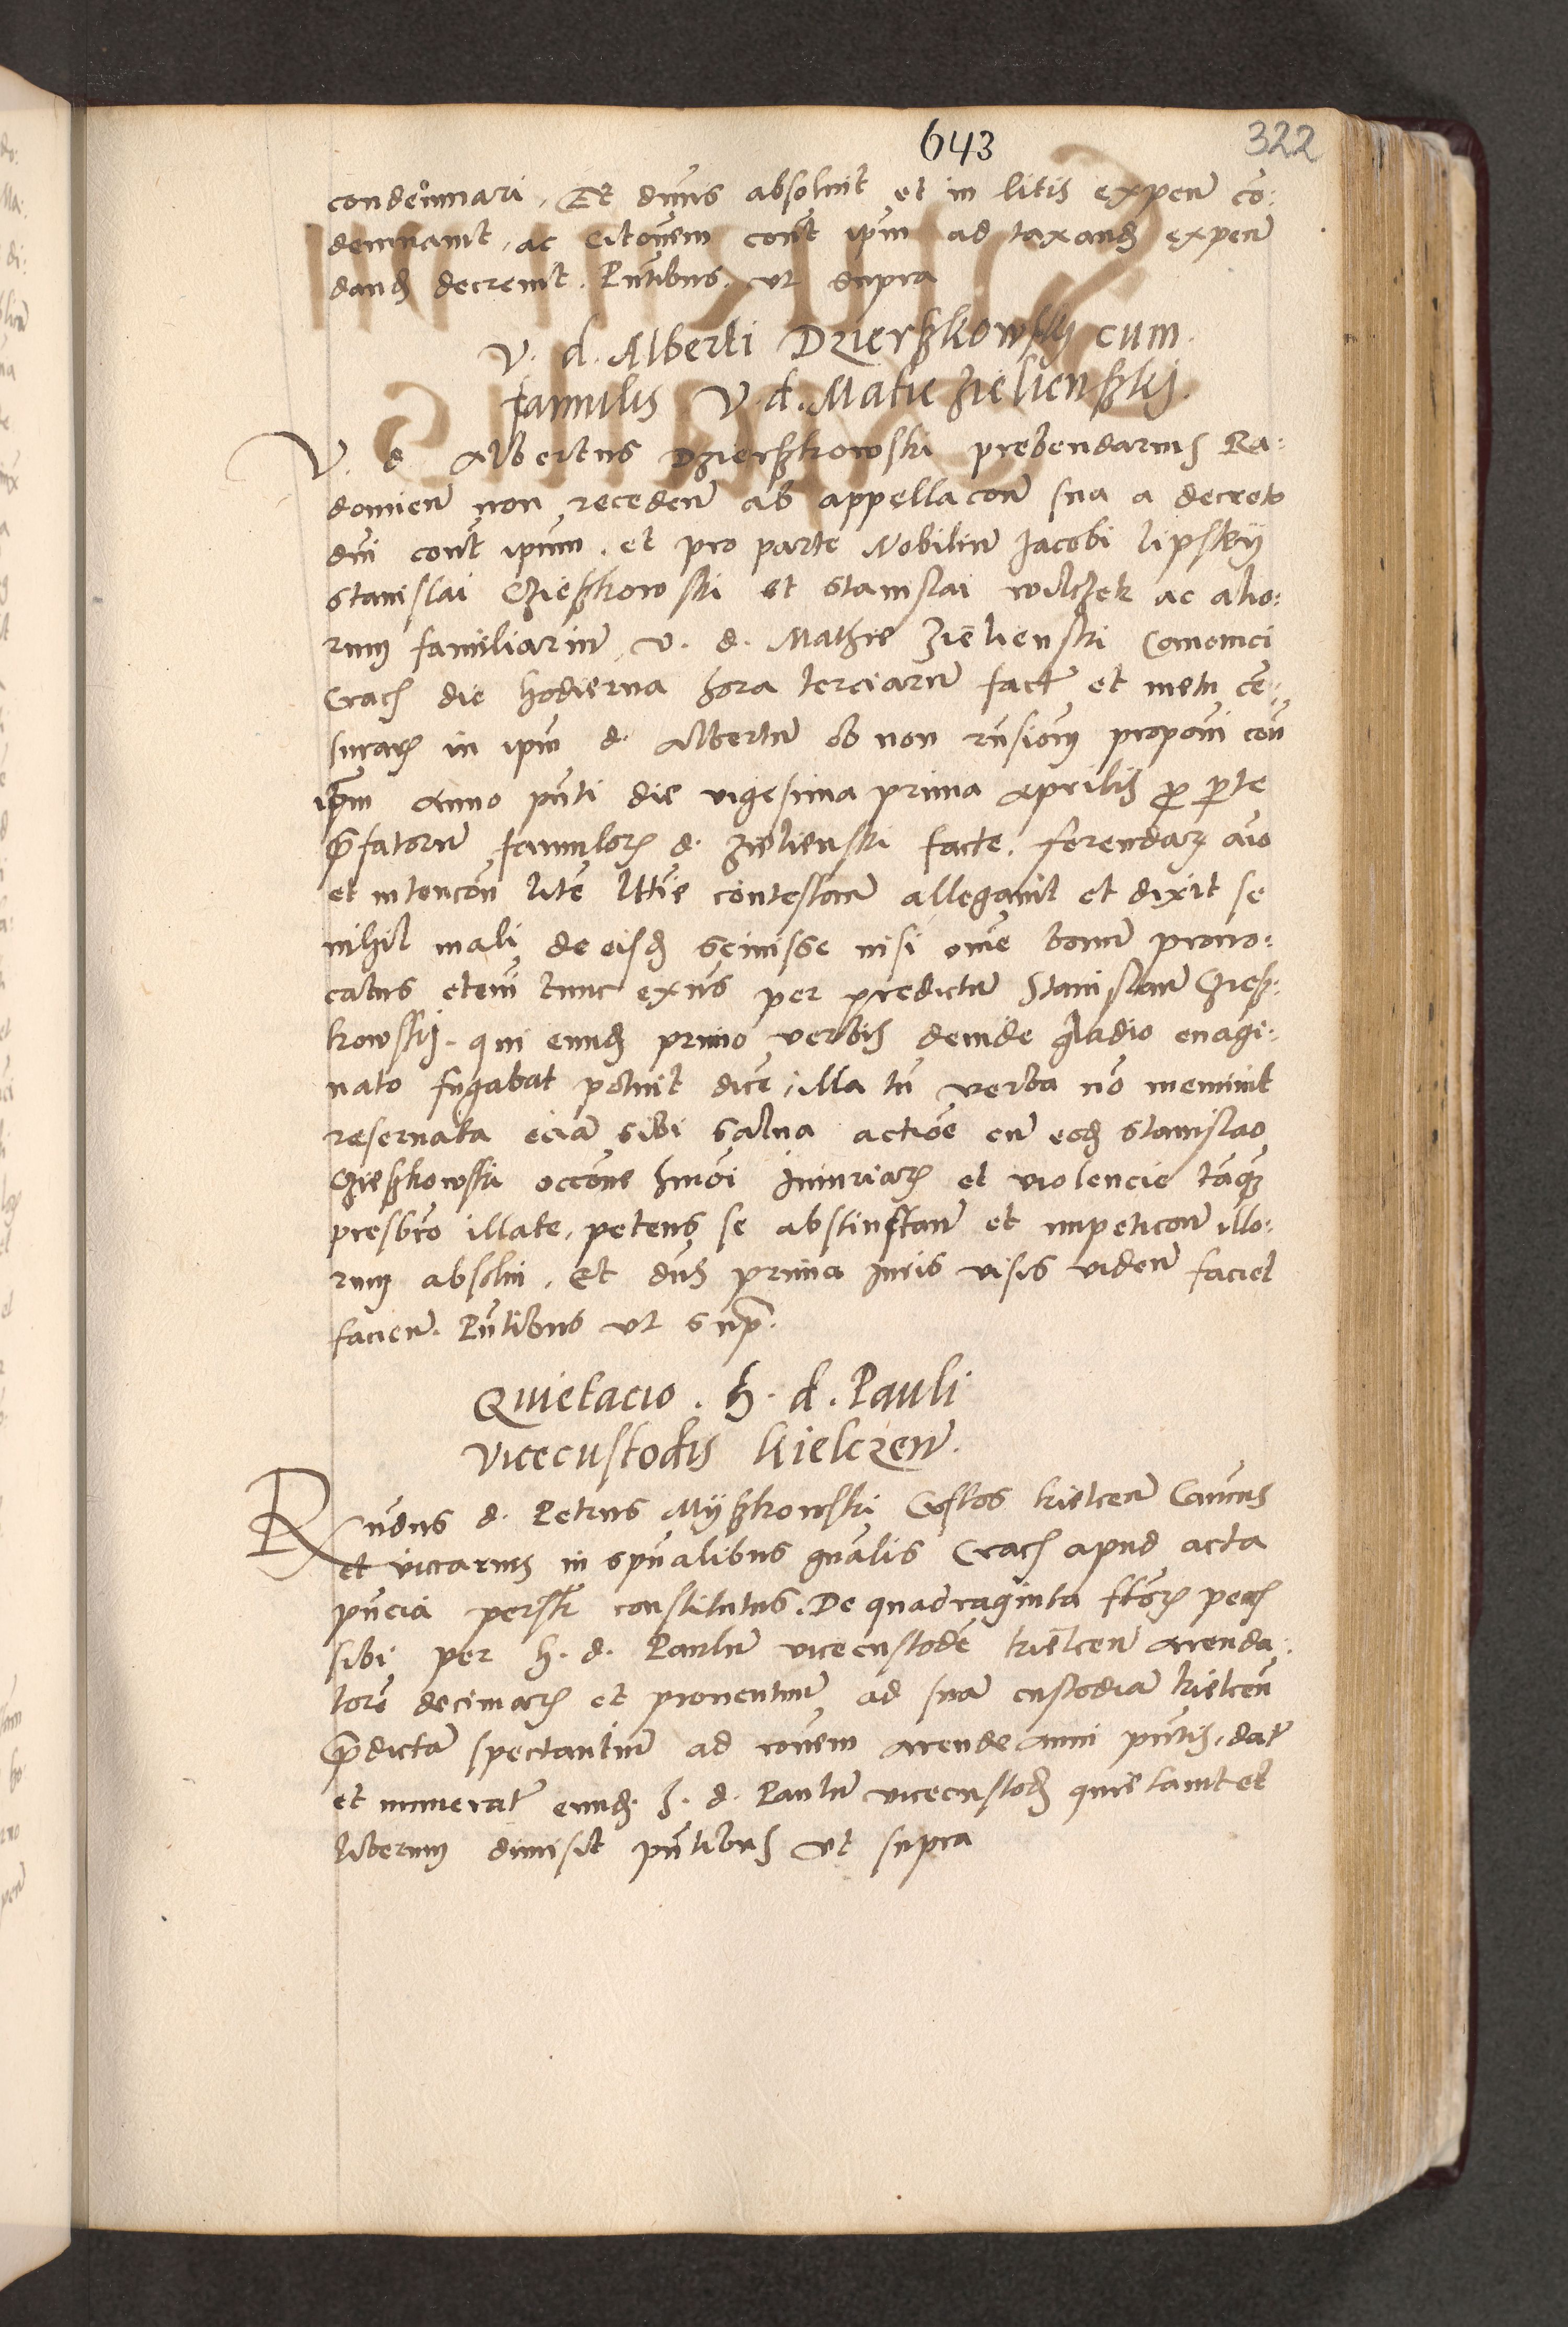 643
322
condemnari. Et dnus absoluit et in litis expen co:
demnauit, ac citonem cont ipm ad taxand expen
dand decreuit. Pntibus. ut supra
V. d. Alberti Dzierßkowskij cum
famulis V. d. Matie Zielienßkij.
V. d Albertus Dzierßkowski prebendarius Ra:
domien non receden ab appellacone sua a decreto
dni cont ipum. et pro parte Nobilium Jacobi Lipskÿ
Stanislai Czießkowski et Stanislai Wilczek ac alio:
rum familiarium V. d. Mathie Zielienski Canonici
Crac die hodierna hora terciarum fact et metu cen:
surar in ipm d. Albertum ob non rnsionem proponi con
ipm Anno pnti die vigesima prima Aprilis pro parte
prefatorum famulor d. Zielienski facte. ferendar aio
et intencon litem lttie contestan allegauit et dixit se
nihil mali de eisd sciuisse nisi omne bonum prouo:
catus etem tunc exns per predictum Stanislaum Czieß:
kowskij. qui eund primo verbis deinde gladio euagi:
nato fugabat potuit dice illa tn verba no meminit
reseruata ecia sibi salua actioe cum eod Stanislao
Czießkowski occone hmoi iniuriar et violencie tanq
presbro illate. petens se ab instan et impeticone illo:
rum absolui. Et dns prima iuris visis viden faciet
facien. Pntibus ut sup.
Quietacio. h. d. Pauli
vicecustodis Kielczen.
Rndus d. Petrus Mÿßkowski Custos Kielcen Cancus
et vicarius in spualibus gnalis Crac apud acta
pncia personalr constitutus. De quadraginta flor pec
sibi per h. d. Paulum vicecustode Kielcen arenda:
tore decimar et prouentuum ad suam custodiam Kielcen
predictam spectantium ad ronem arende anni pntis. dat
et numerat eund. h. d. Paulum vicecustod quietauit et
liberum dimisit pntibus ut supra